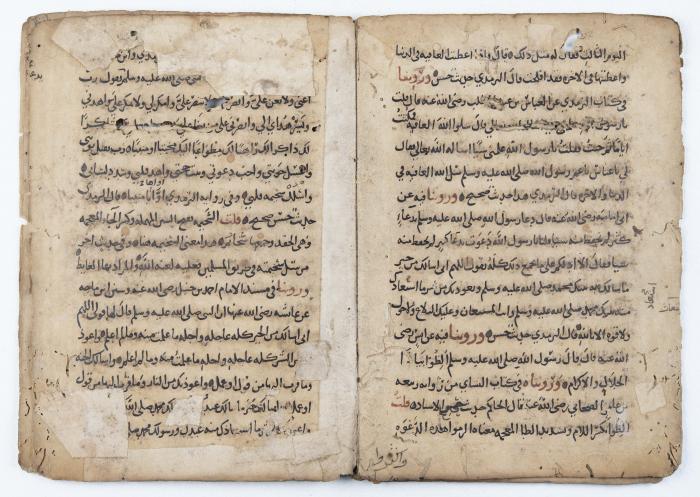 اليوم الثالث فقال له مثل ذلك قال فاذا اعطيت العافيه في الدنيا
واعطيتها في الاخره فقد افلحت قال الترمذي حديث حسن وروينا
في كتاب الترمذي عن العباس بن عبد المطلب رضي الله عنه قال قلت
يا رسول الله علمني شيئا اساله الله تعالى قال سلوا الله العافيه فمكثت
اياما ثم جئت فقلت يا رسول الله علمني شيئا اساله الله تعالى فقال
لي يا عباس يا عم رسول الله صلى الله عليه وسلم سل الله العافيه في
الدنيا والاخره قال الترمذي هذا حديث صحيح وروينا فيه عن
ابي امامه رضي الله عنه قال دعا رسول الله صلى الله عليه وسلم بدعاء
كثير لم نحفظ منه شيئا قلنا يا رسول الله دعوت بدعاء كثير لم نحفظ منه
شيئا فقال الا ادلكم على ما يجمع ذلك كله تقول اللهم اني اسالك من خير
ما سالك منه نبيك محمد صلى الله عليه وسلم ونعوذ بك من شر ما استعاذ
منه نبيك محمد صلى الله عليه وسلم وانت المستعان وعليك البلاغ ولا حول
ولا قوه الا بالله قال الترمذي حديث حسن وروينا فيه عن انس رضي
الله عنه قال قال رسول الله صلى الله عليه وسلم الظوا بيا ذا
الجلال والاكرام ورويناه في كتاب النساي من روايه ربيعه
بن عامر الصحابي رضي الله عنه قال الحاكم حديث صحيح الاسناد قلت
الظوا بكسر اللام وتشديد الظا المعجمه معناه الزموا هذه الدعوه
استعاذ
النبي صلى الله عليه وسلم يقول رب
اعني ولا تعن علي وانصرني ولا تنصر علي وامكر لي ولا تمكر علي واهدني
ويسر هداي لي وانصرني على من بغى علي رب اجعلني لك شكرا
لك ذاكرا لك راهبا لك مطواعا اليك مخبتا او منيبا رب تقبل توبتي
واغسل حوبتي واجب دعوتي وثبت حجتي واهد قلبي وسدد لساني
واسلل سخيمه قلبي وفي روايه الترمذي اواها منيبا قال الترمذي
حديث حسن صحيح قلت السخيمه بفتح السين المهمله وكسر الخا المعجمه
وهي الحقد وجمعها سخايم هذا معنى السخيمه هنا وفي حديث اخر
من سل سخيمته في طريق المسلمين فعليه لعنه الله والمراد بها الغايط
وروينا في مسند الامام احمد بن حنبل رضي الله عنه وسنن ابن ماجه
عن عائشه رضي الله عنها ان النبي صلى الله عليه وسلم قال لها قولي اللهم
اني اسالك من الخير كله عاجله واجله ما علمت منه وما لم اعلم واعوذ
من الشر كله عاجله واجله ما علمت منه وما لم اعلم واسالك الجنه
وما قرب اليها من قول او عمل واعوذ بك من النار وما قرب اليها من قول
او عمل واسالك خير ما سالك عبدك محمد صلى الله
واعوذ بك من شر ما استعاذك منه عبدك ورسولك محمد صلى